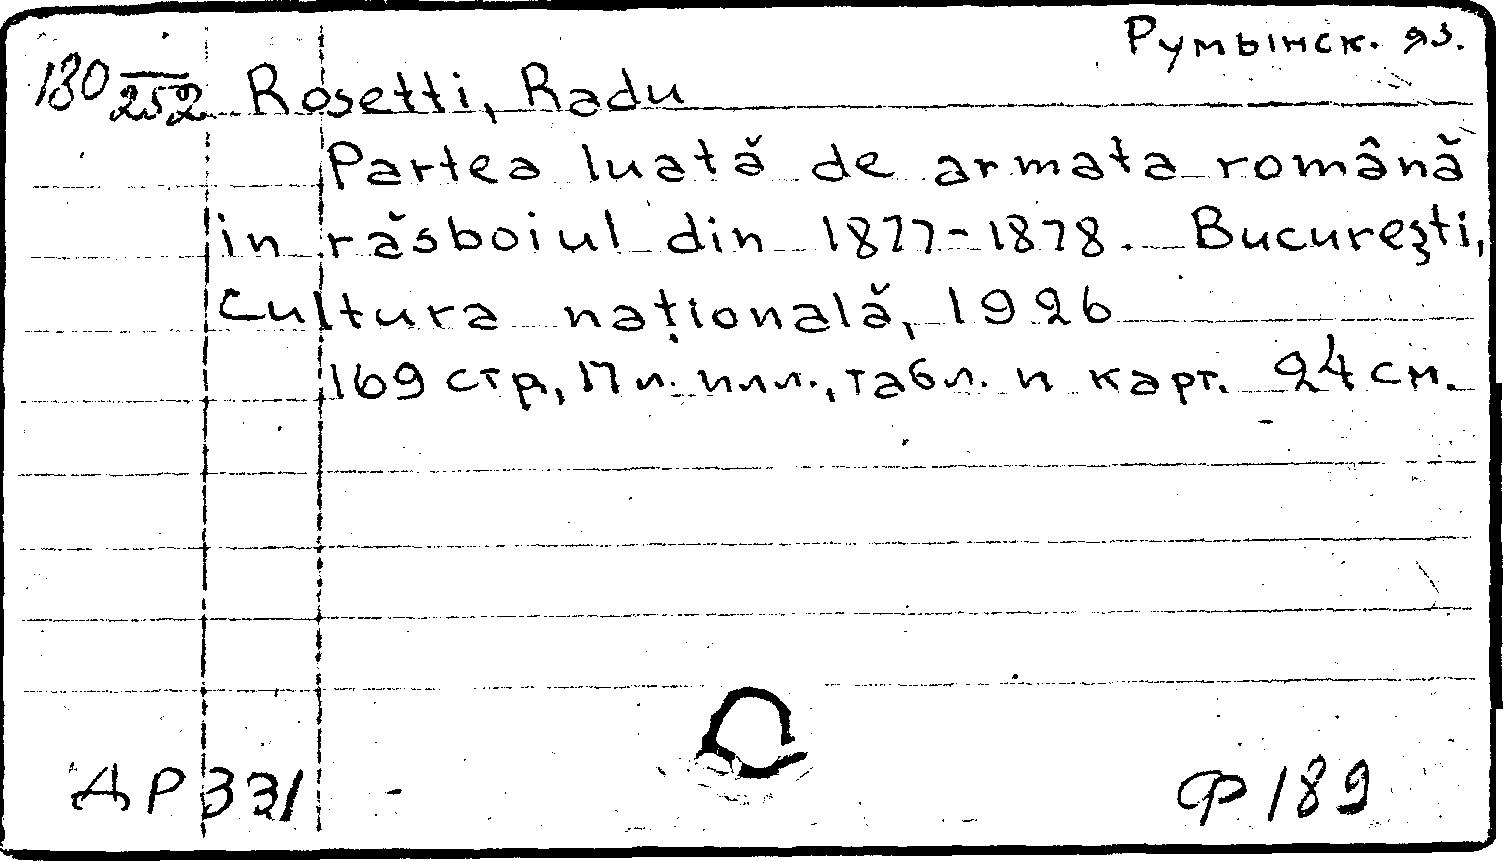 Румынск. яз.
130 252 Rosetti, Radu
Partea luată de armata română
in răsboiul din 1877-1878. Bucureşti,
Cultura naţională, 1926
169 стр, 17 л. илл., табл. и карт. 24 см.
ДР 331 Ф 189